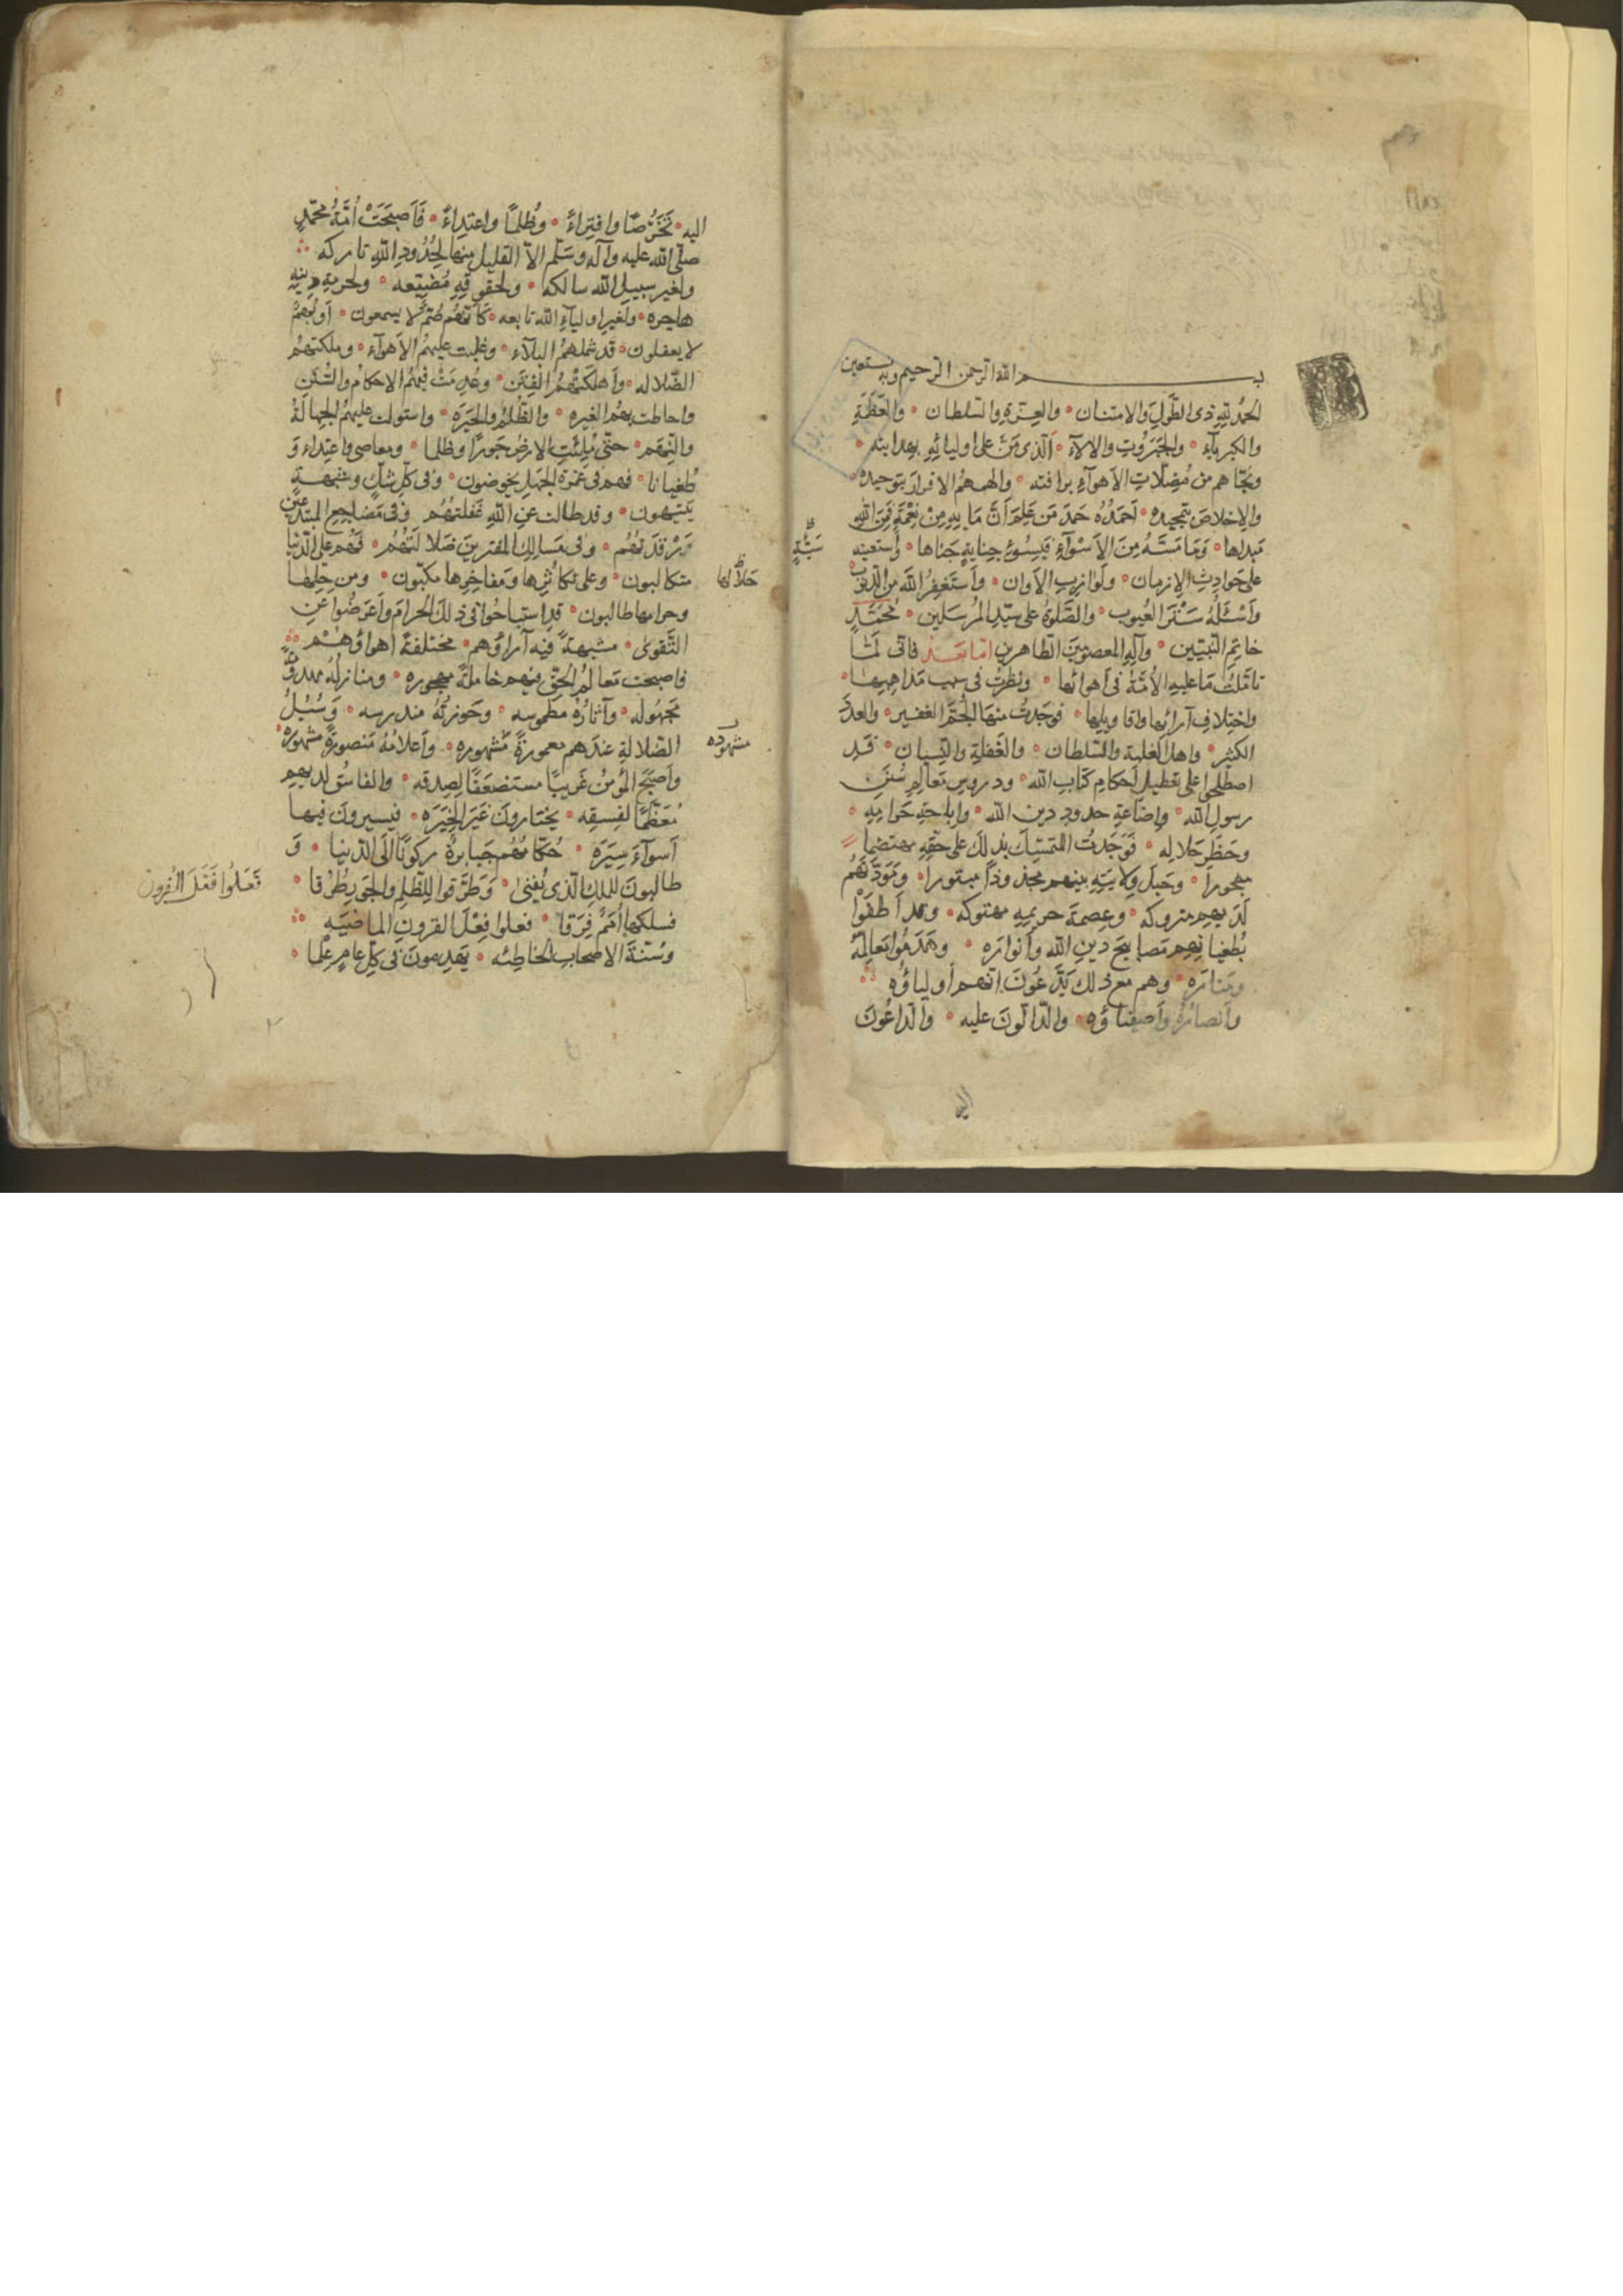 بسم الله الرحمن الرحيم وبه نستعين
الحمد لله ذى الطَّولِ والامتنان والعِزّةِ والسلطان والعَظَمَةِ
والكبرياءِ والجَبَروُتِ والالآء الّذى مَنَّ على اوليائِهِ بهدايته
ونجّاهم من مُضِلّاتِ الأهوآءِ برافته والهمهُمُ الاقرارَ بتوحيده
والاخلاصَ بتمجيده احمَدُه حَمدَ مَن عَلِمَ أنَّ مَا به مِن نِعْمَةٍ فَمِنَ اللهِ
مَبداها وَمَا مَسَّهُ مِنَ الأَسْوآءِ فَبِسُوءِ جِنايةٍ جَناها وأستعينه
سَيِّئَةٍ
على حَوادِثِ الازمان ولَوازبِ الأوان وأستَغفِرُ اللهَ من الذنوب
وأسْئَلُهُ سَتْرَ العُيوب والصَّلوةُ على سيّدِ المُرسَلين مُحَمَّدٍ
خاتِمِ النّبيّين وآلِهِ المعصومينَ الطّاهرين امّا بَعد فانّى لَمّا
تامّلتُ مَا عليهِ الأُمّةُ فى أهوائها ونظرتُ فى سبب مَذاهِبِها
واختِلافِ آرائِها واقاويلِها فوَجَدتُ منهَا الجَمَّ الغفير والعدَدَ
الكثير واهل الغلبة والسلطان والغَفلةِ والنّسيان قَدِ
اصطلحوا على تعطيلِ أحكامِ كتابِ الله ودروسِ مَعالِمِ سُنَنِ
رسول الله وإضاعةِ حدودِ دين الله وإباحَةِ حَرامِهِ
وحَظرِ حَلالِه فوَجَدتُ المتمسّكَ بذلكَ على حقِّهِ مهتضماً
مهجوراً وحَبلَ ولايتهِ بينهم مجذوذاً مبتورا ومَوَدّتَهُم
لَديهِم متروكه وعِصمةَ حريمِه مهتوكه وقد أطفَؤا
بُطغيانِهِم مَصابيحَ دينِ الله وأنوارَه وهَدَمُوا مَعالِمَهُ
ومَنارَه وهم مع ذلك يَدَّعُونَ انّهم أولياؤُه
وأنصارُهُ وأصفِياؤه والدّالّونَ عليه والدّاعُونَ
اليه
اليه تَخَرُّصًا وافتِراءً وظُلمًا واعتِداءً فَأصبَحَتْ أُمّةُ محمّدٍ
صلّى الله عليه وآله وسَلّم الاّ القليل منها لِحُدُودِ اللهِ تاركه
ولغير سبيلِ الله سالكه ولحقوقِهِ مُضَيِّعه ولحرمةِ دينِهِ
هاجره ولغيرِ اولياءِ الله تابعه كانّهُم صُمٌّ لا يسمعون أو بُهمٌ
لا يعقلون قد شملهُمُ البلاء وغلبت عليهُمُ الأهوآء وملكتهُمُ
الضّلاله وأهلكتْهُمُ الفِتَن وعُدِمَتْ فيهُمُ الاحكام والسُّنَن
واحاطت بهُمُ الغيره والظُلمُ والحَيَره واستولت عليهُمُ الجهالةُ
والنِّقَم حتّى مُلِئَتِ الارضُ جَورًا وظلما ومعاصى واعتِداء وَ
طُغيانا فهم فى غَمرَةِ الجَهلِ يخوضون وفى كلِّ شكٍّ وشبهةٍ
يَتيهون وقد طالت عنِ اللهِ غَفلتُهُم وفى مَضاجِعِ المبتدعين
رَقدَتُهُم وفى مَسالِكِ المفترينَ ضَلالَتُهُم فَهُم على الدّنيا
متكالبون وعلى تكاثُرِها ومفاخِرِها مكبّون ومن حِلِّها
حَلالها
وحرامها طالبون قدِ استباحُوا فى ذلكَ الحرامَ وأعرَضُوا عنِ
التّقوى مشتبهةً فيه آراؤهم مختلفةً اهواؤهُم
فاصبحت مَعالِمُ الحقِّ فيهم خاملةً مهجوره ومنازلُهُ
مجهوله وآثارُهُ مطموسه وحَوزتُهُ مندرسه وَسُبُلُ
الضّلالةِ عندهم معمورةً مشهوره وأعلامُهُ مَنصورةً مشهوره
مشهوده
وأصبَحَ المؤمنُ غريبًا مستضعَفًا لِصِدقه والفاسُق لديهِم
مُعَظَّمًا لفِسقِه يختارونَ غَيرَ الخِيَرَه فيسيرونَ فيها
أسوآءَ سِيَرَه حُكّامُهُم جَبابرةٌ ركونًا الَى الدّنيا وَ
طالبونَ للملكِ الّذى يُفنى وَطَرَّقوا للِظُلمِ والجَورِ طُرُقا
فَعَلُوا فَعَلَ القُرون
فسلكها أُمَمٌ فِرَقا فعلوا فِعْلَ القرونِ الماضيَه
وسُنّةَ الاصحابِ الخاطِئه يَهدِمونَ فى كلِّ عامٍ عَلَمًا